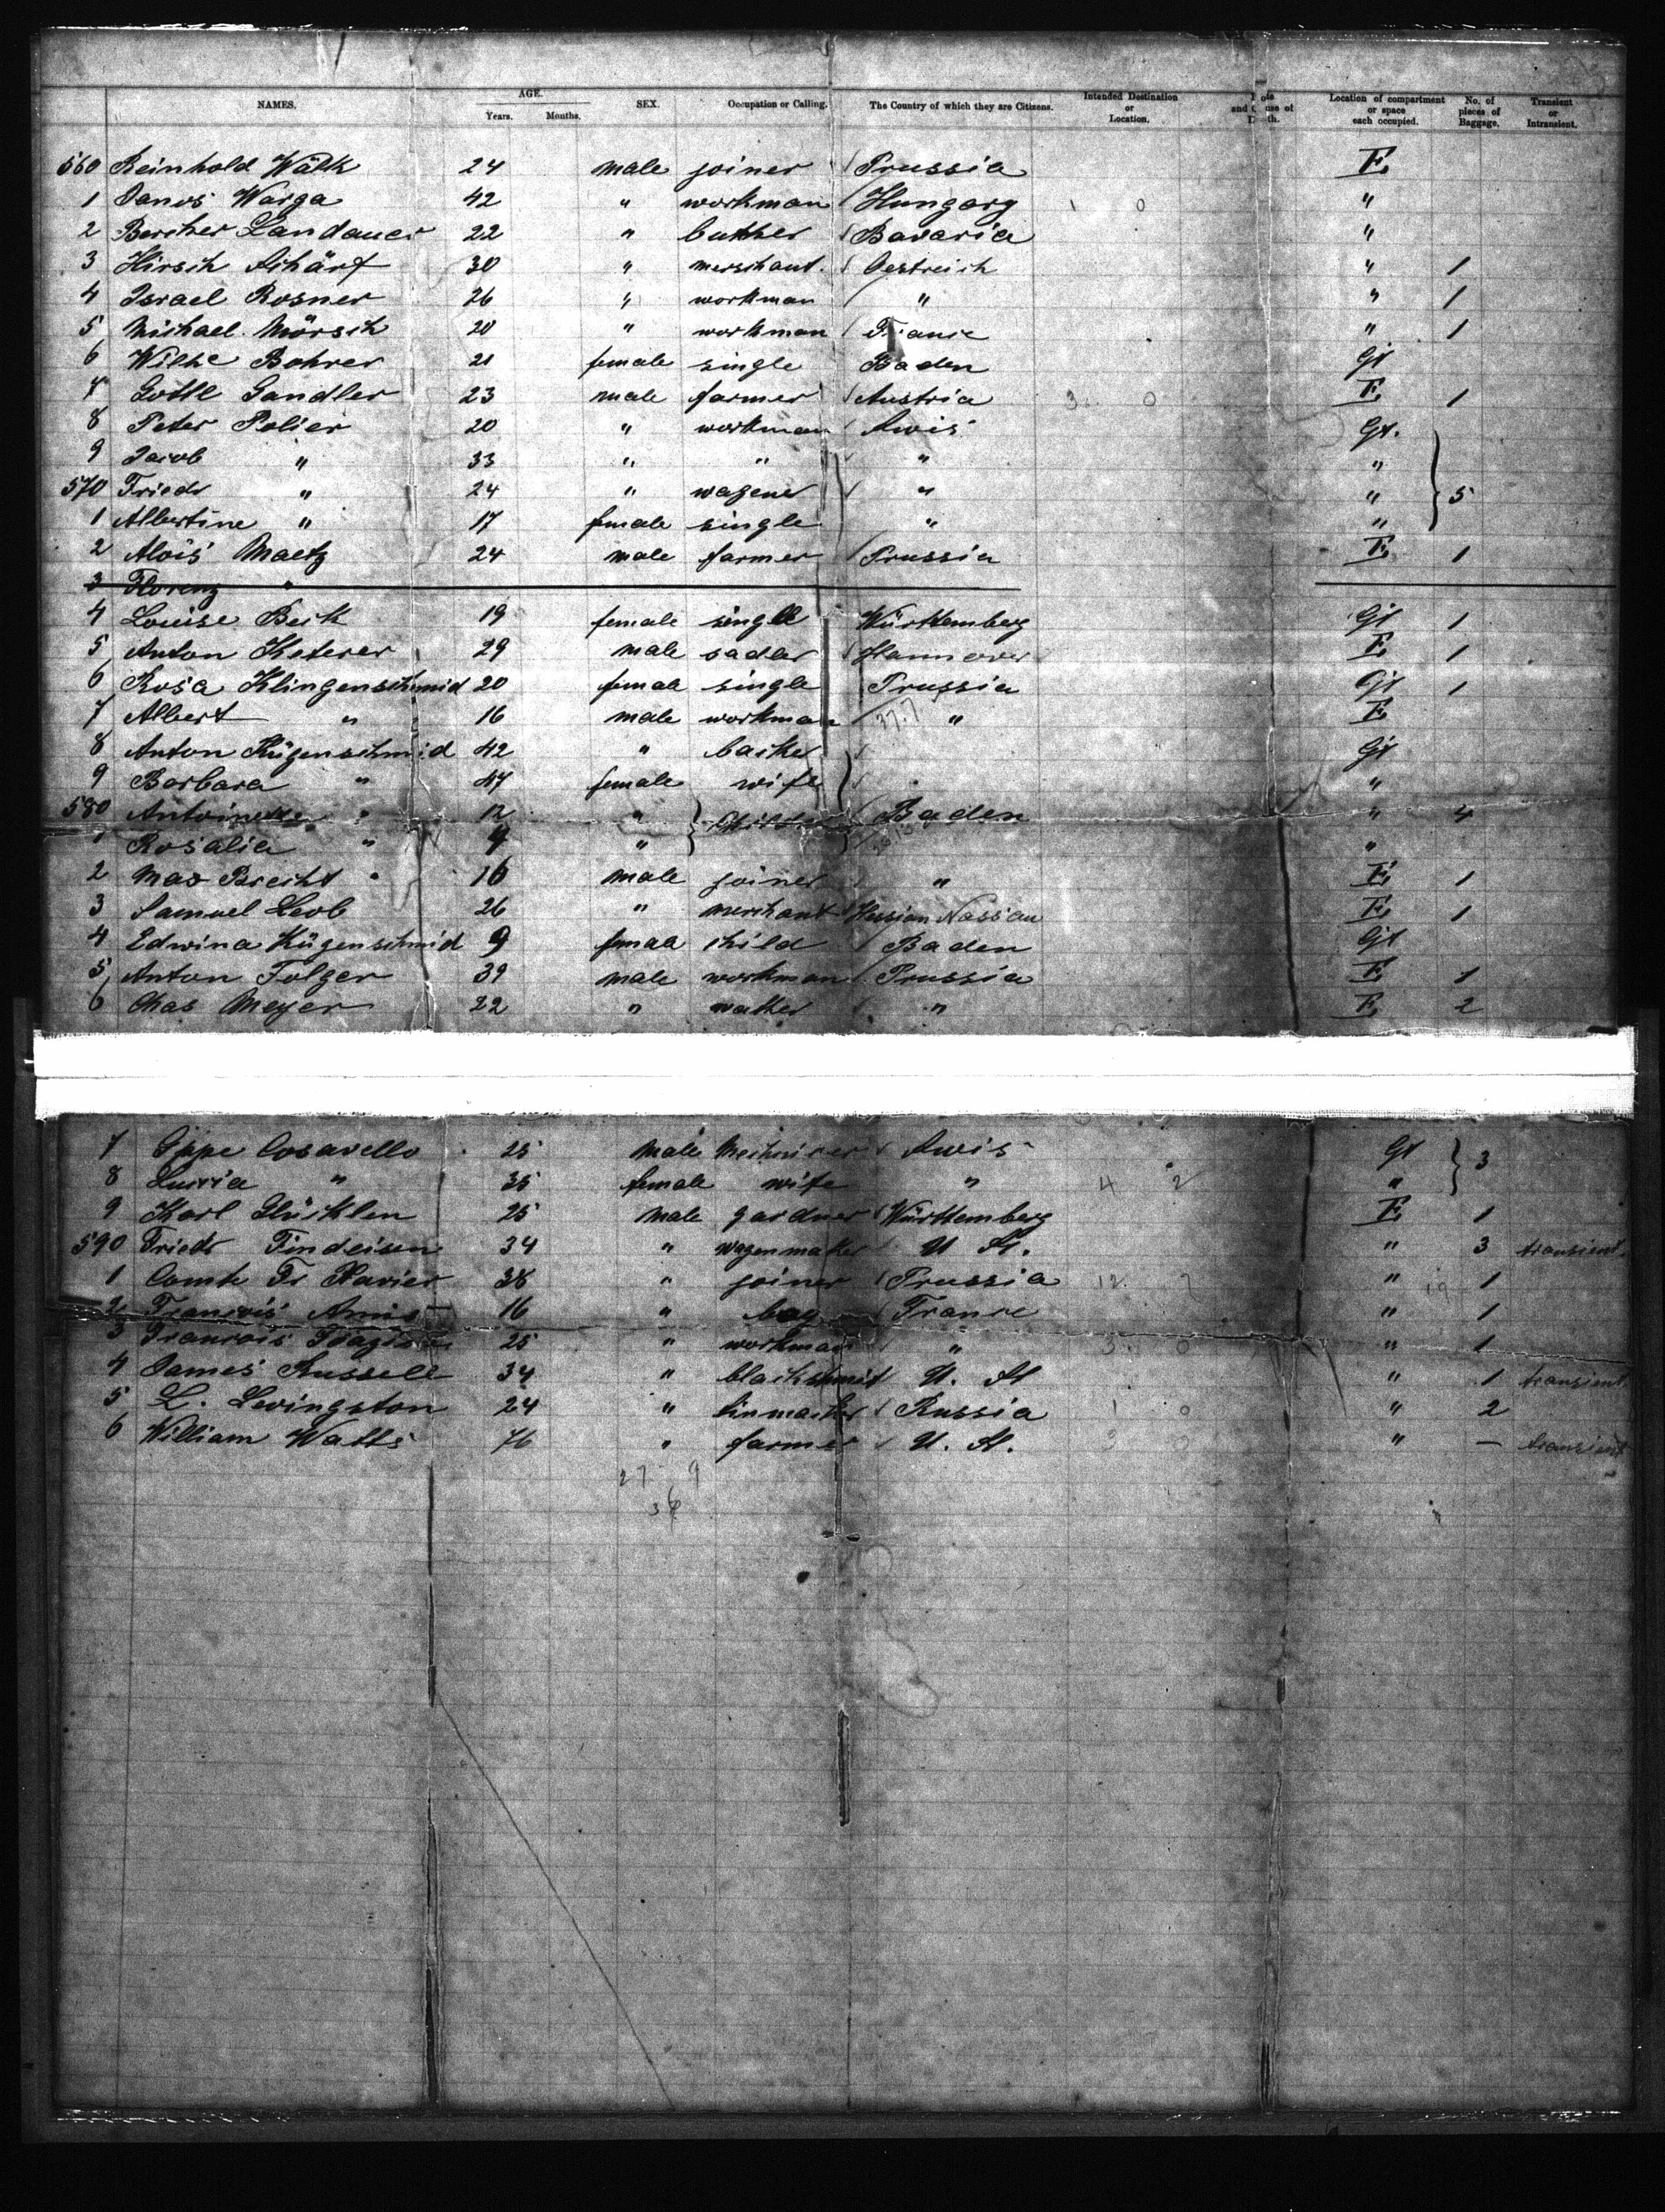 NAMES. AGE. Years. Months. SEX. Occupation or Calling. The Country of which they are Citizens. Intended Destination or Location. Location of compartment or space each occupied. No. of pieces of Baggage. Transient or Intransient.
560 Reinhold Wälk 24 male joiner Prussia E
1 Janos Warga 42 " workman Hungary 1 0 "
2 Bercher Landauer 22 " butcher Bavaria "
3 Hirsch Schärf 30 " merschant. Oestreich " 1
4 Israel Rosner 26 " workman " " 1
5 Michael Mörsch 20 " workman France " 1
6 Wilhe Bohrer 21 female single Baden Gt
7 Gottl Gandler 23 male farmer Austria 3 0 E 1
8 Peter Polier 20 " workman Swis Gt.
9 Jacob " 33 " " " "
570 Friedr " 24 " wagener " " 5
1 Albertine " 17 female single " "
2 Alois Maetz 24 male farmer Prussia E 1
3 Florenz "
4 Louise Beck 19 female single Württemberg Gt 1
5 Anton Keterer 29 male sadler Hannover E 1
6 Rosa Klingenschmid 20 female single Prussia Gt 1
7 Albert " 16 male workman " E
8 Anton Kügenschmid 42 " backer Gt
9 Barbara " 47 female wife "
580 Antoinette " 12 " Baden " 4
1 Rosalia " 4 " "
2 Max Brecht 16 male joiner " E 1
3 Samuel Leob 26 " merchant Hessian Nassau E 1
4 Edwina Kügenschmid 9 femaa child Baden Gt
5 Anton Folger 39 male workman Prussia E 1
6 Chas Meyer 22 " " E 2
7 Cosavello 25 male Swis Gt 3
8 " 35 female wife " 4 2 "
9 Karl 25 male gardner Württemberg E 1
590 Friedr Findeisen 34 " wagenmaker U St. " 3 transient.
1 Comte Fr Xavier 38 " joiner Prussia 12 7 " 19 1
2 Francois Amis 16 " boy France " 1
3 Francois 25 " workman " 3 0 " 1
4 James Russell 34 " blackshmit U. St " 1 transient.
5 L. Levingston 24 " tinmacker Russia 1 0 " 2
6 William Watts 76 " farmer U. St. 3 0 " — transient
27 9
36